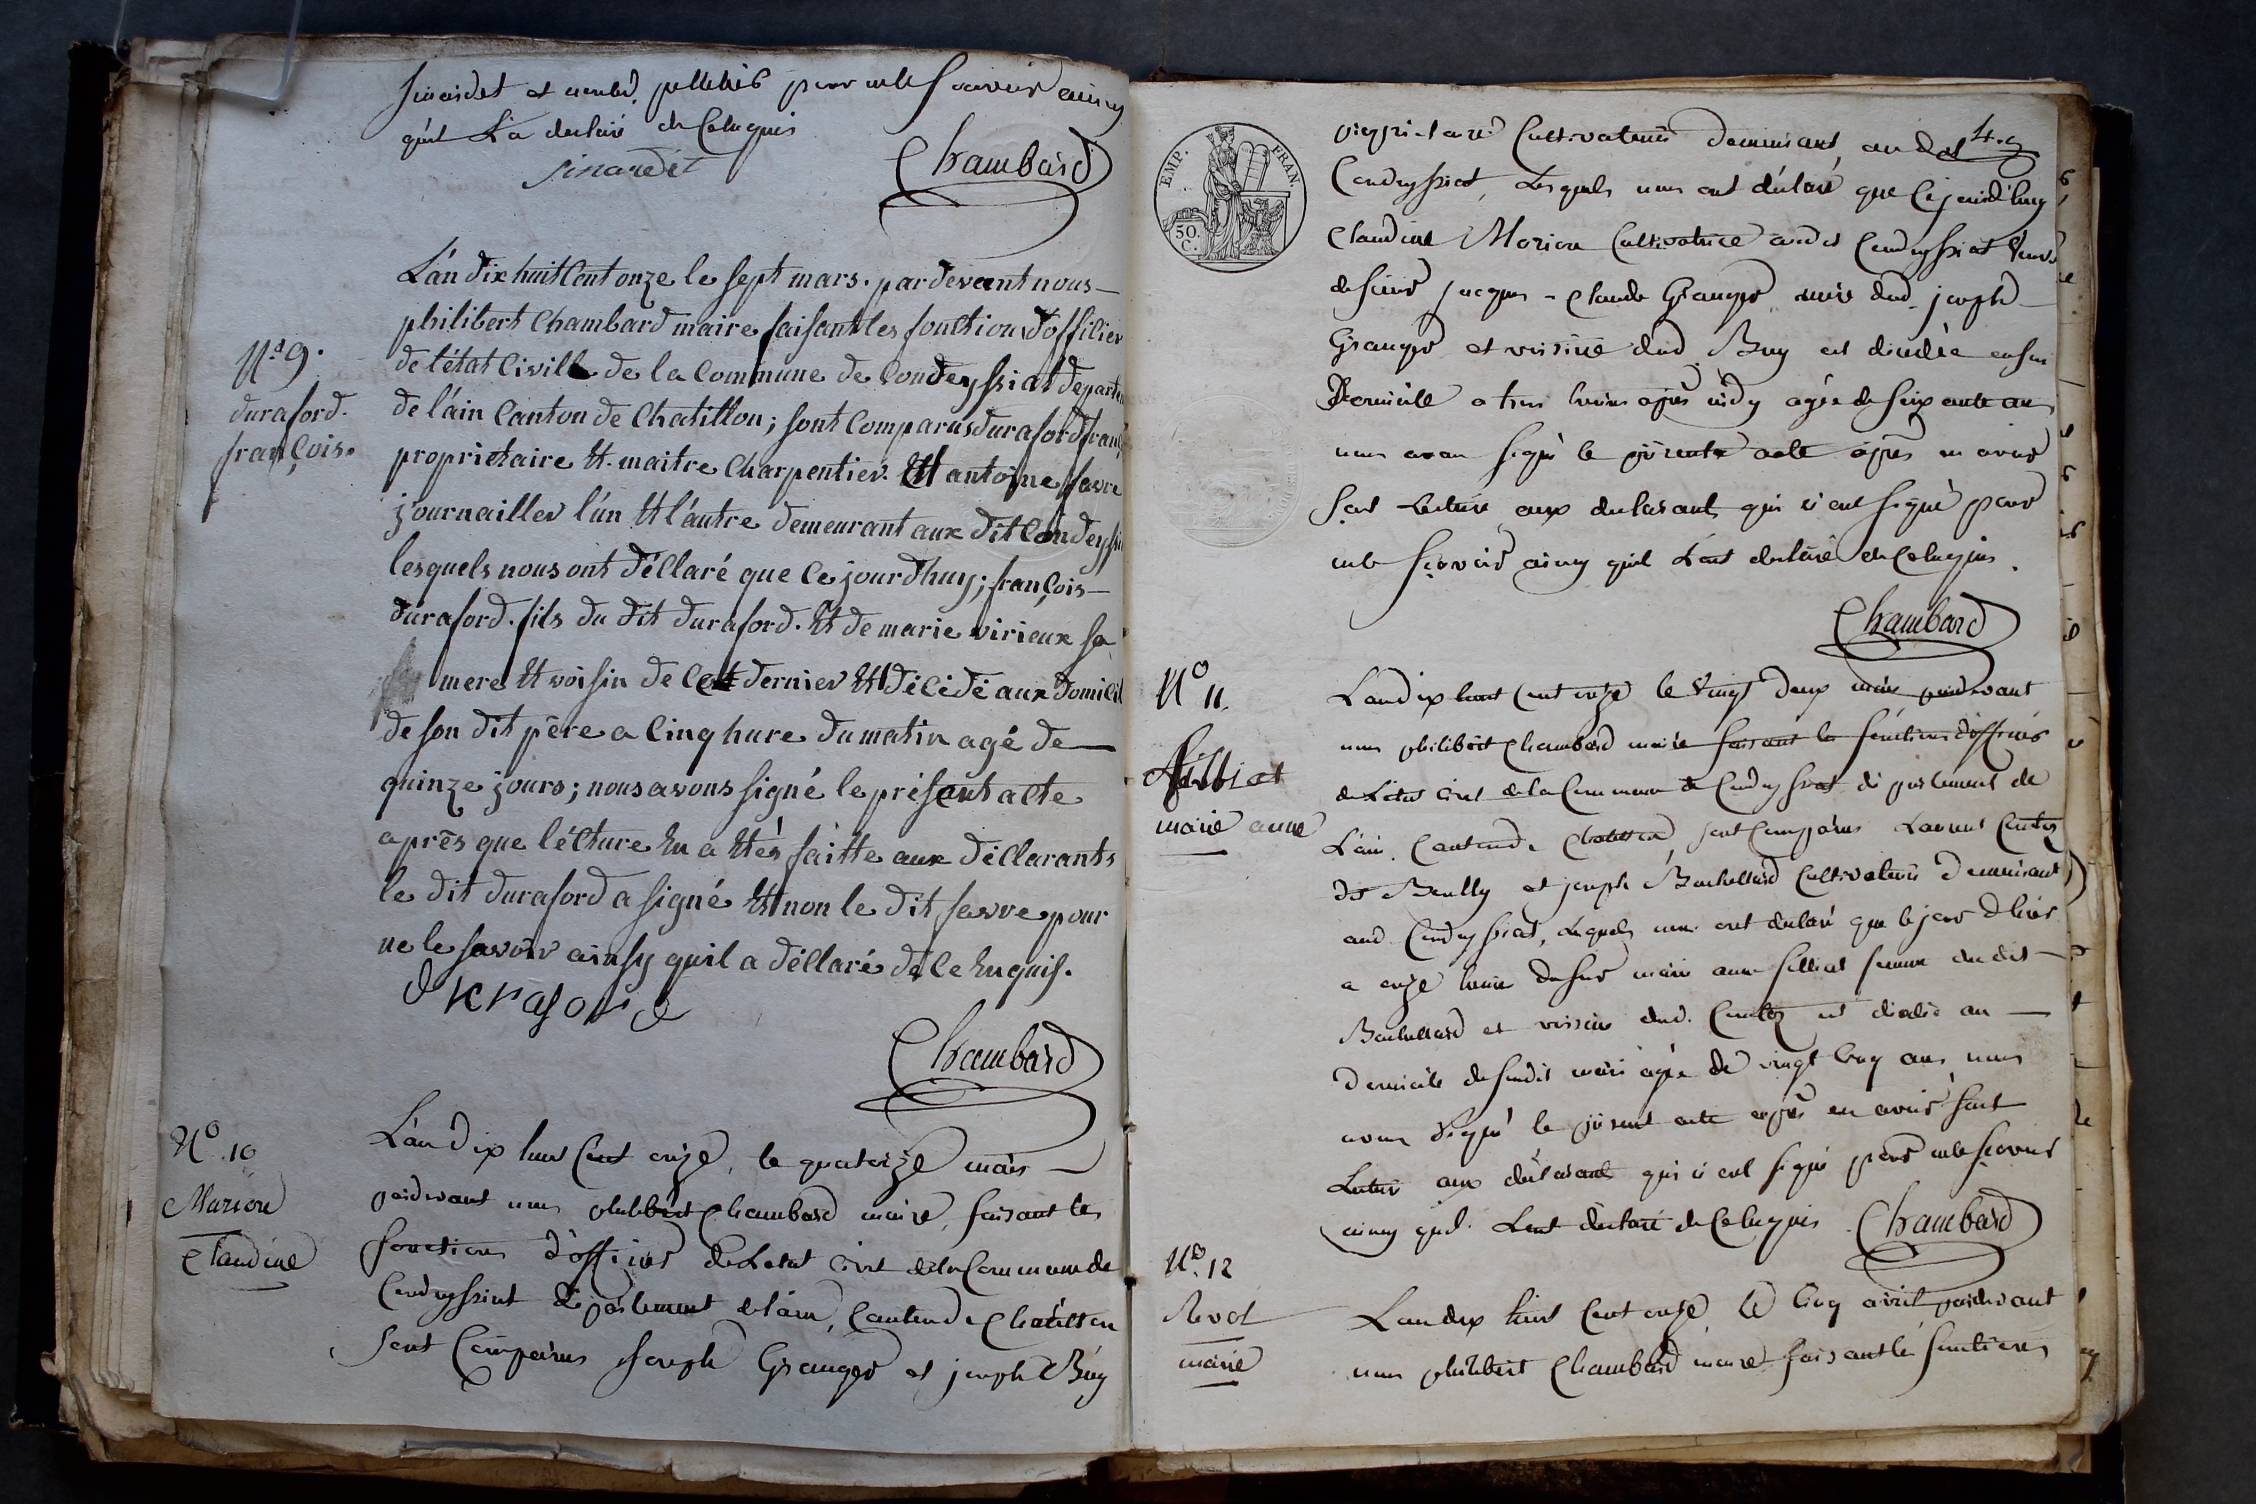 sinardet et non led. pelletier pour ne le savoir ainsy
qu'il l'a déclaré de ce enquis
sinardet
Chambard
N.o 9.
duraford.
françois.
L'an dix huit Cent onze le sept mars. pardevant nous
philibert Chambard maire faisant les fonctions d'officier
de l'état Civille de la Commune de Condeyssiat departe
de l'ain Canton de Chatillon; sont Comparus duraford franç
propriétaire Et. maitre Charpentier. Et antoine favre
journaillier l'un Et l'autre demeurant aux dit Condeyssi
lesquels nous ont déllaré que Ce jourdhuy; françois
duraford. fils du dit duraford. Et de marie virieux sa
mere Et voisin de Cet dernier Et décédé aux domicil
de son dit père a Cinq hure du matin agé de
quinze jours; nous avons signé le présent acte
après que lécture En a Etés faitte aux déllarants
le dit duraford a signé Et non le dit favre pour
ne le savoir ainsy quil a déllaré de Ce Enquis.
duraford
Chambard
N.o 10
Marion
Claudine
L'an dix huit Cent onze, le quatorze mars
pardevant nous philibert Chambard maire, faisant les
fonctions d'officier de Letat civil de la Commune de
Condeyssiat département de l'ain, Canton de Chatillon
sont Comparus joseph Granger et joseph Buy
EMP. FRAN.
50. C.
4.
propriétaire Cultivateur demeurant aud
Condeyssiat, Lesquels nous ont déclaré que Cejourd'huy
Claudine Morion Cultivatrice audit Condeyssiat veuve
de feue jacques-Claude Granger mere dud. joseph
Granger et voisine dud. Buy est décédée en son
Domicille a trois heures après midy agée de soixante ans
nous avons signé le présente acte après en avoir
fait Lecture aux déclarants qui n'ont signé pour
ne le sçavoir ainsy qu'il L'ont déclaré de Ce enquis.
Chambard
N.o 11.
fillliat
marie anne
L'an dix huit Cent onze le vingt deux mars pardevant
nous philibert Chambard maire faisant les fonctions d'officier
de L'état civil de la Commune de Condeyssiat département de
L'ain Canton de Chatillon, sont Comparus Laurent
de Neuilly et joseph Bachellard Cultivateurs demeurant
aud. Condeyssiat, Lesquels nous ont déclaré que le jour d'hier
a onze heure du soir marie anne filliat femme dudit
Bachellard et voisine dud. est décédée au
domicile de sondit mari agée de vingt Cinq ans, nous
avons signé le présent acte après en avoir fait
Lecture aux déclarants qui n'ont signé pour ne le sçavoir
ainsy qu'il L'ont déclaré de Ce enquis. Chambard
N.o 12
Revol
marie
L'an dix huit Cent onze, le Cinq avril pardevant
nous philibert Chambard maire faisant les fonctions